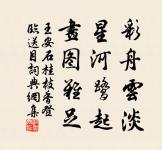 彩舟雲淡
星河鷺起
畫圖難足
王安石桂枝香登
臨送目詞典網集